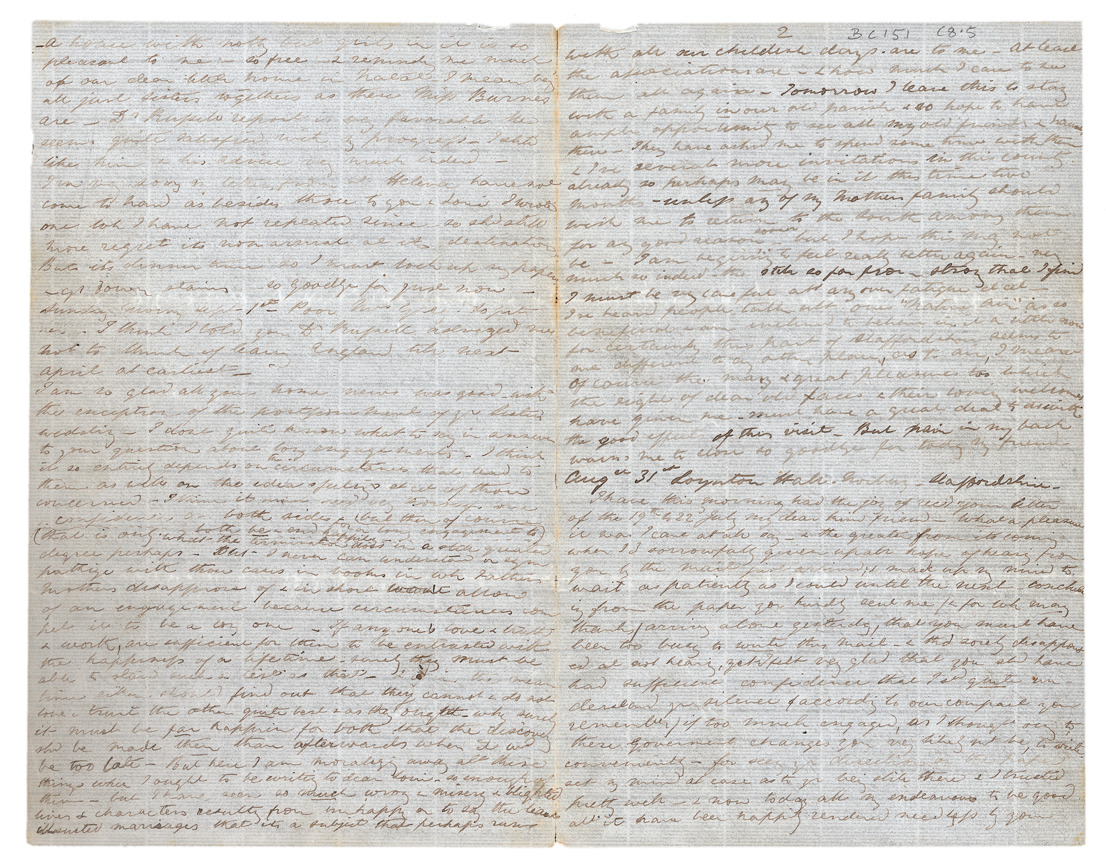 a house with noth<sup>g</sup> but girls in it is so
pleasant to me - so free & reminds me much
of our dear little home in Natal I mean by
all just sisters together as these Miss Burnes
are - D<sup>r</sup> Russell's report is very favorable he
seems quite satisfied with my progress - I still
like him & his advice very much indeed -
I'm very sorry my letters from St Helena have not
come to hand as besides those to you & Louie I wrote
one wh I have not repeated since so sh<sup>d</sup> still
more regret its non arrival at its destination
But its dinner time so I must lock up my paper
& go down stairs so goodbye for just now -
Sunday morn<sup>g</sup> Sep<sup>r</sup> 1<sup>st</sup> Poor
I think I told you D<sup>r</sup> Russell advised me
not to think of leav<sup>g</sup> England till next
April at earliest -
I am so glad all your home news was good with
the exception of the postponement of y<sup>r</sup> sister's
wedding - I don't quite know what to say in answer
to your question about long engagements - I think
it so entirely depends on the circumstances that lead to
them as well on the ideas & feel<sup>gs</sup> etc of those
concerned - I think it
confidence on both sides - (but then of course
(that is only what the term happy engagement to)
both begin and does in a greater
degree perhaps - But I never can understand or sym
pathize with those cases in books in wh Fathers
Mothers disapprove of & in short wont allow
of an engagement because circumstances com
pels it to be a long one - If any one's love & trust
& worth, are sufficient for them to be entrusted with
the happiness of a lifetime - surely they must be
able to stand such a test as that - & if in the mean
time either should find out that they cannot & do not
love & trust the other quite best & as they ought - why surely
it must be far happier for both, that the discovery
sh<sup>d</sup> be made then than afterwards when it w<sup>d</sup>
be too late - But here I am moralizing away all these
things when I ought to be writ<sup>g</sup> to dear Louie so enough of
them - but I have seen so much wrong & misery & blighted
lives & characters result<sup>g</sup> from unhappy or to say the least
illsuited marriages that its a subject that perhaps runs
2 BC151 C8.5
with all our childish days are to me - At least
the associations are - & how much I care to see
them all again - Tomorrow I leave this to stay
with a family in our old parish & so hope to have
ample opportunity to see all my old friends & haunts
there - They have asked me to spend some time with them
& I've several more invitations in this county
already so perhaps may be in it this time two
months - unless any of my Mothers family should
wish me to return to the South among them
for any good reason sooner but I hope this may not
be - I am beginn<sup>g</sup> to feel really better again - very
much so indeed - tho' still so far from - strong that I find
I must be very careful abt any over fatigue etc etc -
I've heard people talk abt ones "native air" being so
beneficial & am inclined to believe in it a little now
for certainly this part of Staffordshire seems to
me different to any other place, as to air, I mean
Of course the many & great pleasures too which
the sight of dear old faces & their loving welcomes
have given me - must have a great deal to do with
the good effect of this visit - But pain in my back
warns me to close so goodbye for today my friend
Aug<sup>st</sup> 31<sup>st</sup> Loynton Hall Norbury - Staffordshire -
I have this morning had the joy of receiv<sup>g</sup> your letter
of the 19<sup>th</sup> & 22<sup>d</sup> July my dear kind friend - What a pleasure
it was I cant at all say - & the greater from its coming
when I'd sorrowfully given up all hope of hear<sup>g</sup> from
you by the mail just arriv<sup>d</sup>; & made up my mind to
wait as patiently as I could until the next conclud
<sup>g</sup> from the paper you kindly sent me (& for wh many
thanks) arriv<sup>g</sup> alone yesterday, that you must have
been too busy to write this mail - & tho' sorely disappoint
ed at not hearing, yet felt very glad that you sh<sup>d</sup> have
had sufficient confidence that I sh<sup>d</sup> quite un
derstand y<sup>r</sup> silence (accord<sup>g</sup> to our compact you
remember) if too much engaged, as I thought ow<sup>g</sup> to
these Government changes you very likely w<sup>d</sup> be, to write
conveniently - for see<sup>g</sup> y<sup>r</sup> direction on the paper
set my mind at ease as to yr being still there & I trusted
pretty well - & now today all my endeavours to be good
abt it have been happily rendered needless by your